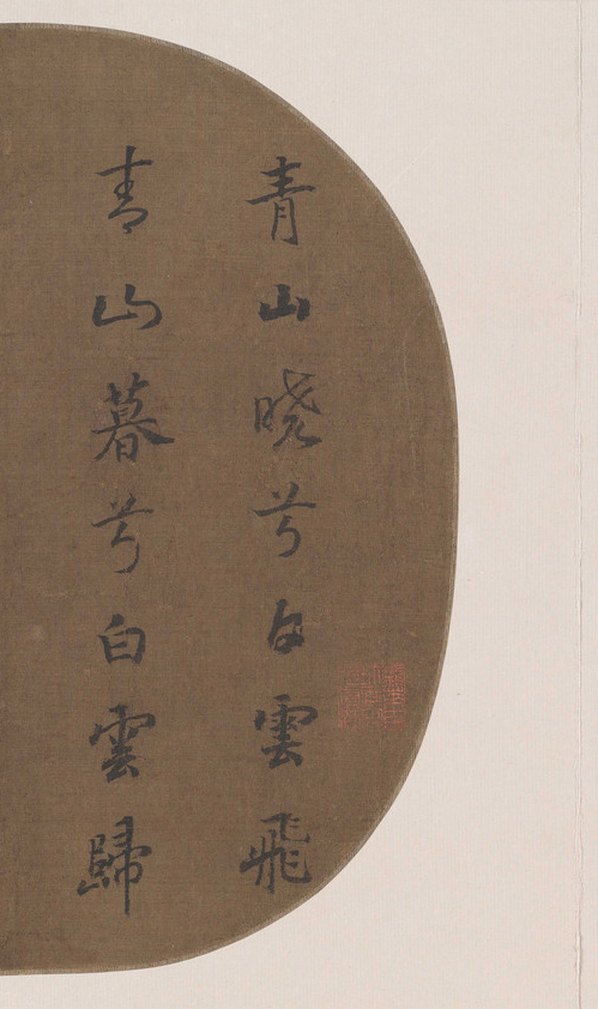 青山晓兮白雲飛
青山暮兮白雲歸